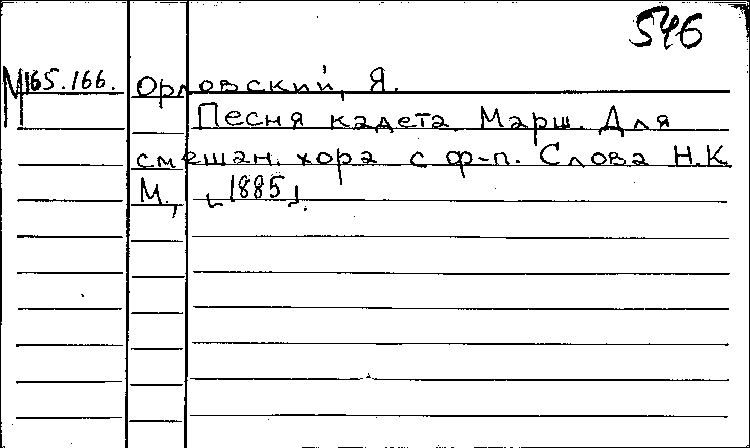 546
М165.166. Орловский, Я.
Песня кадета. Марш. Для
смешан. хора с ф-п. Слова Н.К
М., [1885].